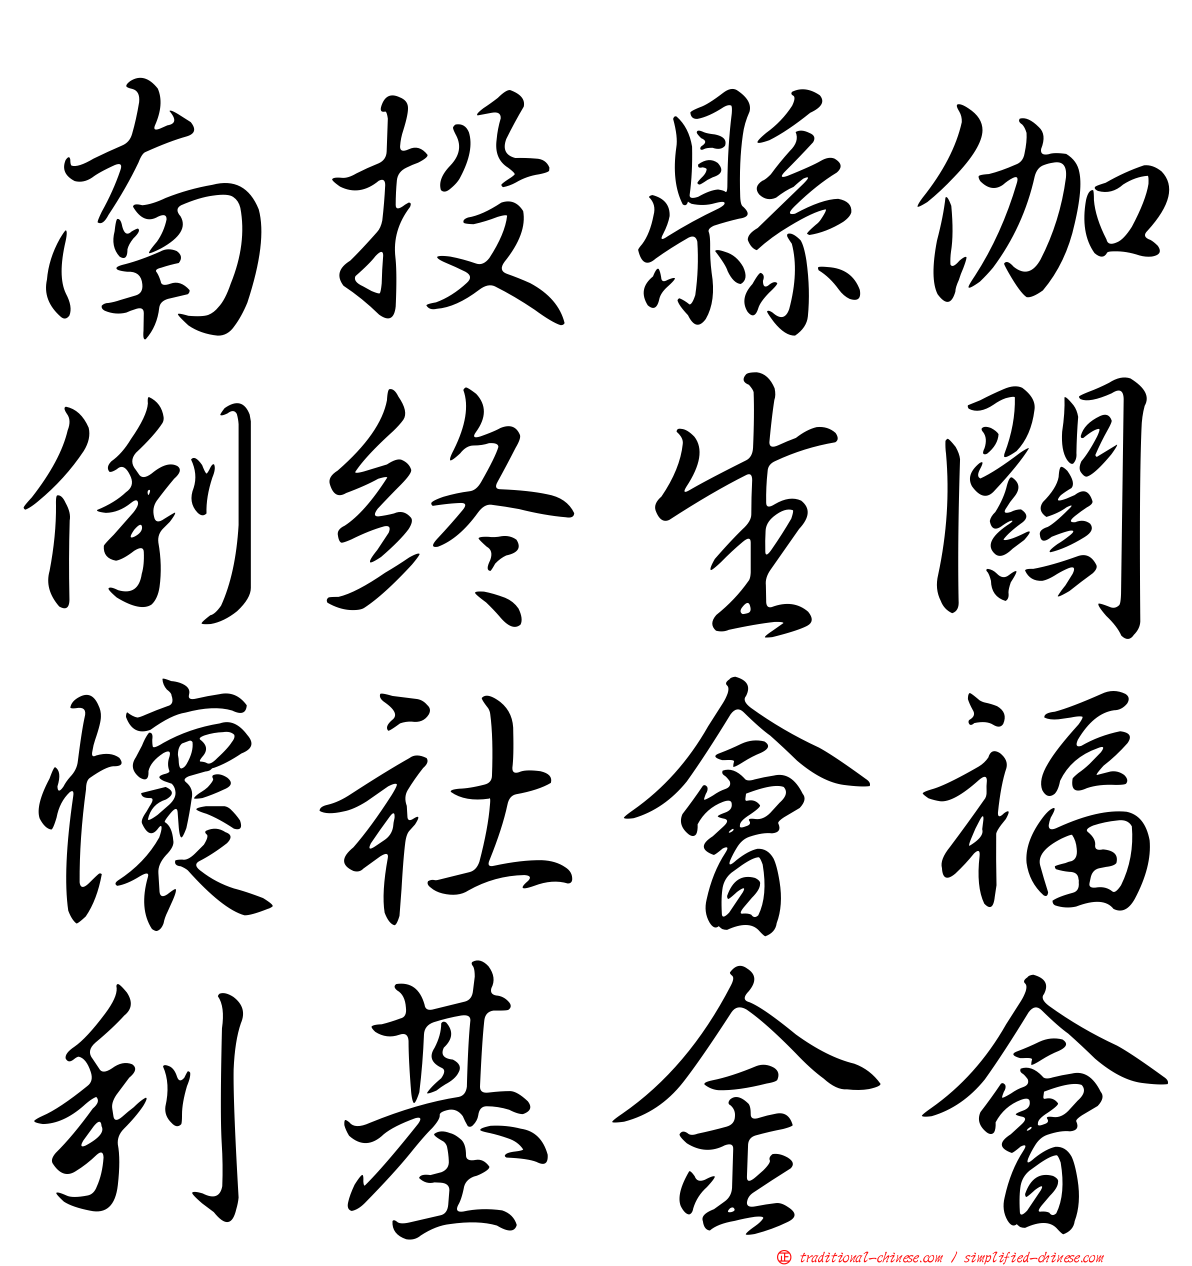 南投縣伽
俐終生關
懷社會福
利基金會
正 traditional-chinese.com / simplified-chinese.com